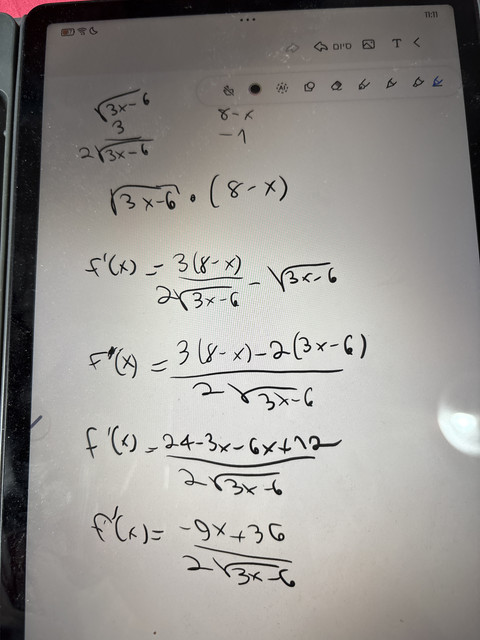 11:11
סיום T <
√3x-6 8-x
3 -1
2√3x-6
√3x-6 • (8-x)
f'(x) = 3(8-x) / 2√3x-6 - √3x-6
f'(x) = 3(8-x)-2(3x-6) / 2√3x-6
f'(x) = 24-3x-6x+12 / 2√3x-6
f'(x) = -9x+36 / 2√3x-6